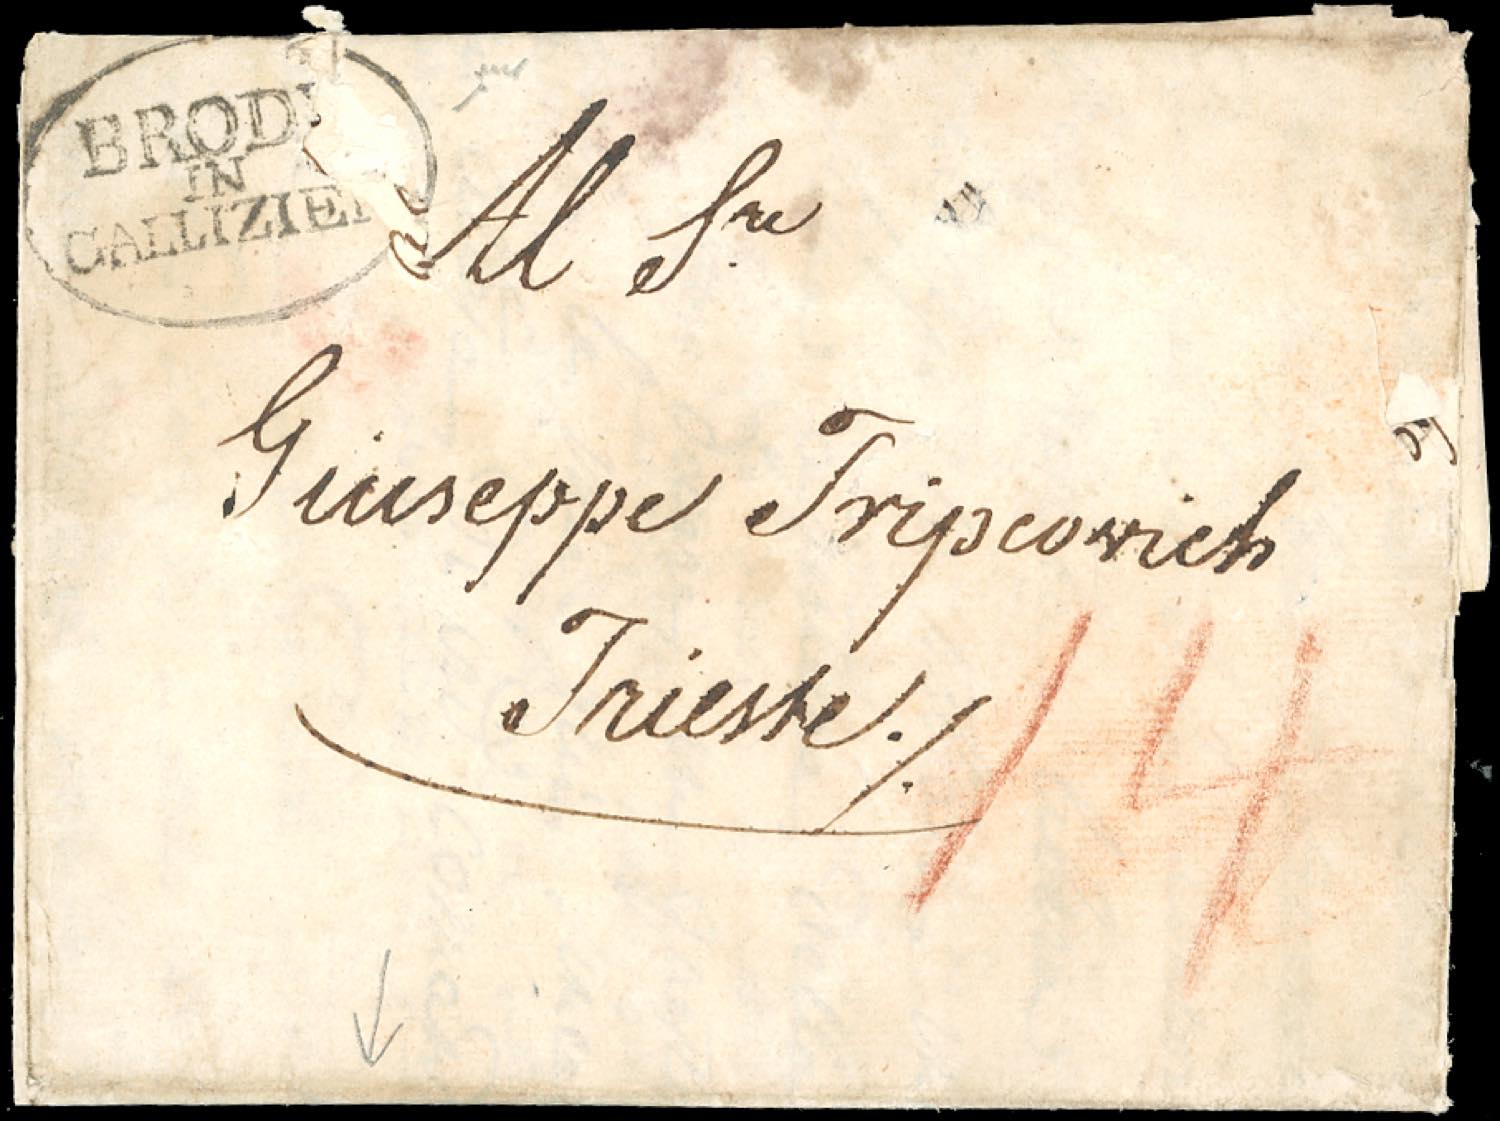 BRODY
IN
GALLIZIEN
Al Sre
Giuseppe Tripcovich
Trieste./.
14